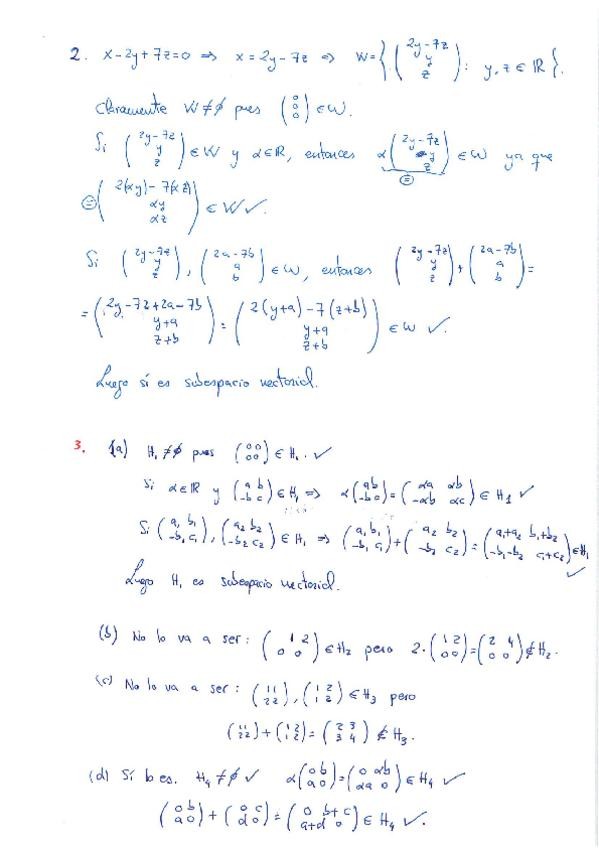 2. x-2y+7z=0 ⇒ x=2y-7z ⇒ W={(2y-7z; y; z): y,z∈ℝ}.
Claramente W≠∅ pues (0; 0; 0)∈W.
Si (2y-7z; y; z)∈W y α∈ℝ, entonces α(2y-7z; y; z)∈W ya que
=(2(αy)-7(αz); αy; αz)∈W✓.
Si (2y-7z; y; z), (2a-7b; a; b)∈W, entonces (2y-7z; y; z)+(2a-7b; a; b)=
=(2y-7z+2a-7b; y+a; z+b)=(2(y+a)-7(z+b); y+a; z+b)∈W ✓.
Luego sí es subespacio vectorial.
3. (a) H₁≠∅ pues (0 0; 0 0)∈H₁. ✓
Si α∈ℝ y (a b; -b c)∈H₁ ⇒ α(a b; -b c)=(αa αb; -αb αc)∈H1 ✓
Si (a₁ b₁; -b₁ c₁), (a₂ b₂; -b₂ c₂)∈H₁ ⇒ (a₁ b₁; -b₁ c₁)+(a₂ b₂; -b₂ c₂)=(a₁+a₂ b₁+b₂; -b₁-b₂ c₁+c₂)∈H₁ ✓
Luego H₁ es subespacio vectorial.
(b) No lo va a ser: (1 2; 0 0)∈H₂ pero 2·(1 2; 0 0)=(2 4; 0 0)∉H₂.
(c) No lo va a ser: (1 1; 2 2), (1 2; 1 2)∈H₃ pero
(1 1; 2 2)+(1 2; 1 2)=(2 3; 3 4)∉H₃.
(d) Sí lo es. H₄≠∅ ✓ α(0 b; a 0)=(0 αb; αa 0)∈H₄ ✓
(0 b; a 0)+(0 c; d 0)=(0 b+c; a+d 0)∈H₄ ✓.